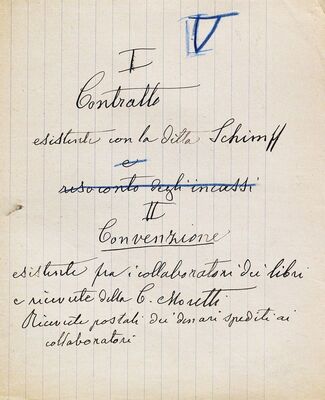 V
I
Contratto
esistente con la ditta Schimpff
e
resoconto degli incassi
II
Convenzione
esistente fra i collaboratori dei libri
e ricevute della C. Moretti
Ricevute postali dei denari spediti ai
collaboratori